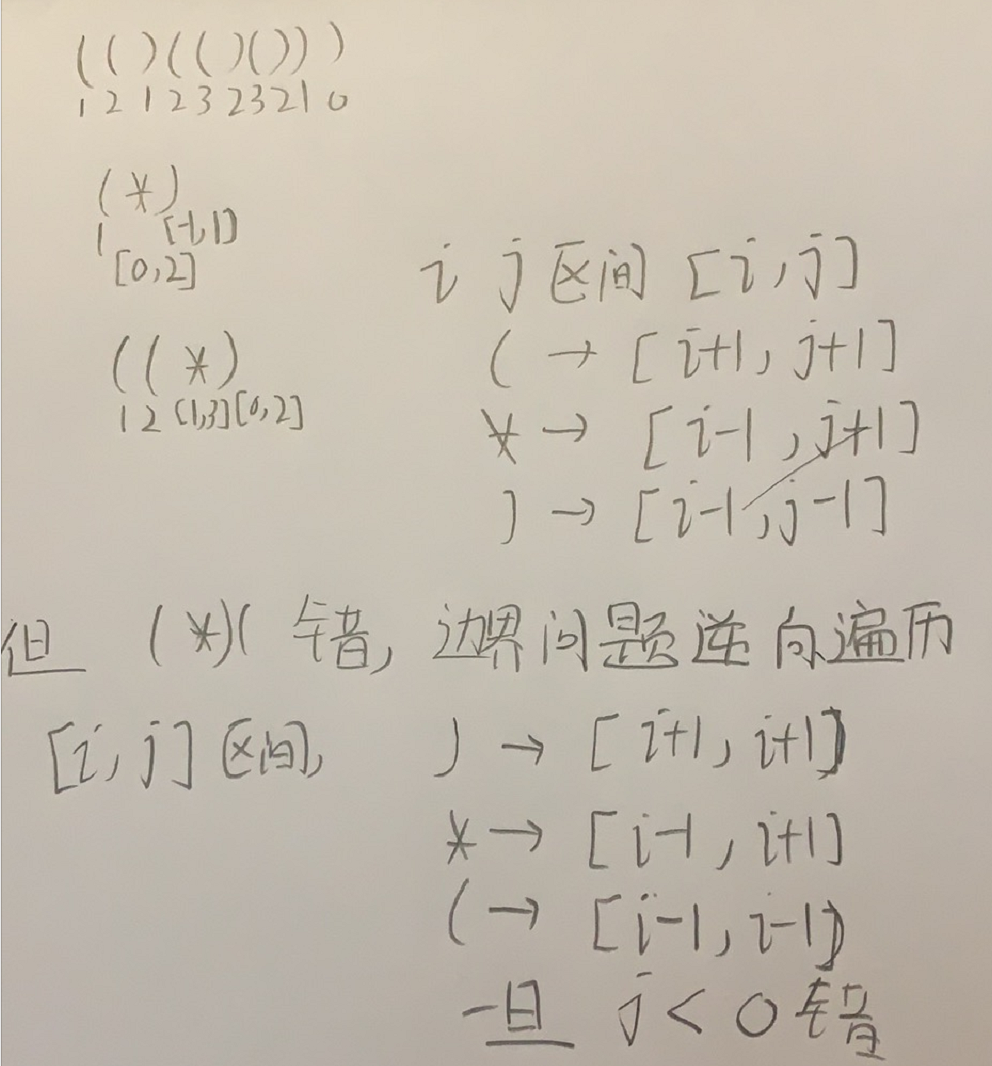 (()(()()))
1 2 1 2 3 2 3 2 1 0
(*)
1 [-1,1]
[0,2]
((*)
1 2 [1,3][0,2]
i j 区间 [i,j]
( → [i+1, j+1]
* → [i-1, j+1]
) → [i-1, j-1]
但 (*)( 错, 边界问题逆向遍历
[i,j] 区间,
) → [i+1, i+1]
* → [i-1, i+1]
( → [i-1, i-1]
一旦 j < 0 错